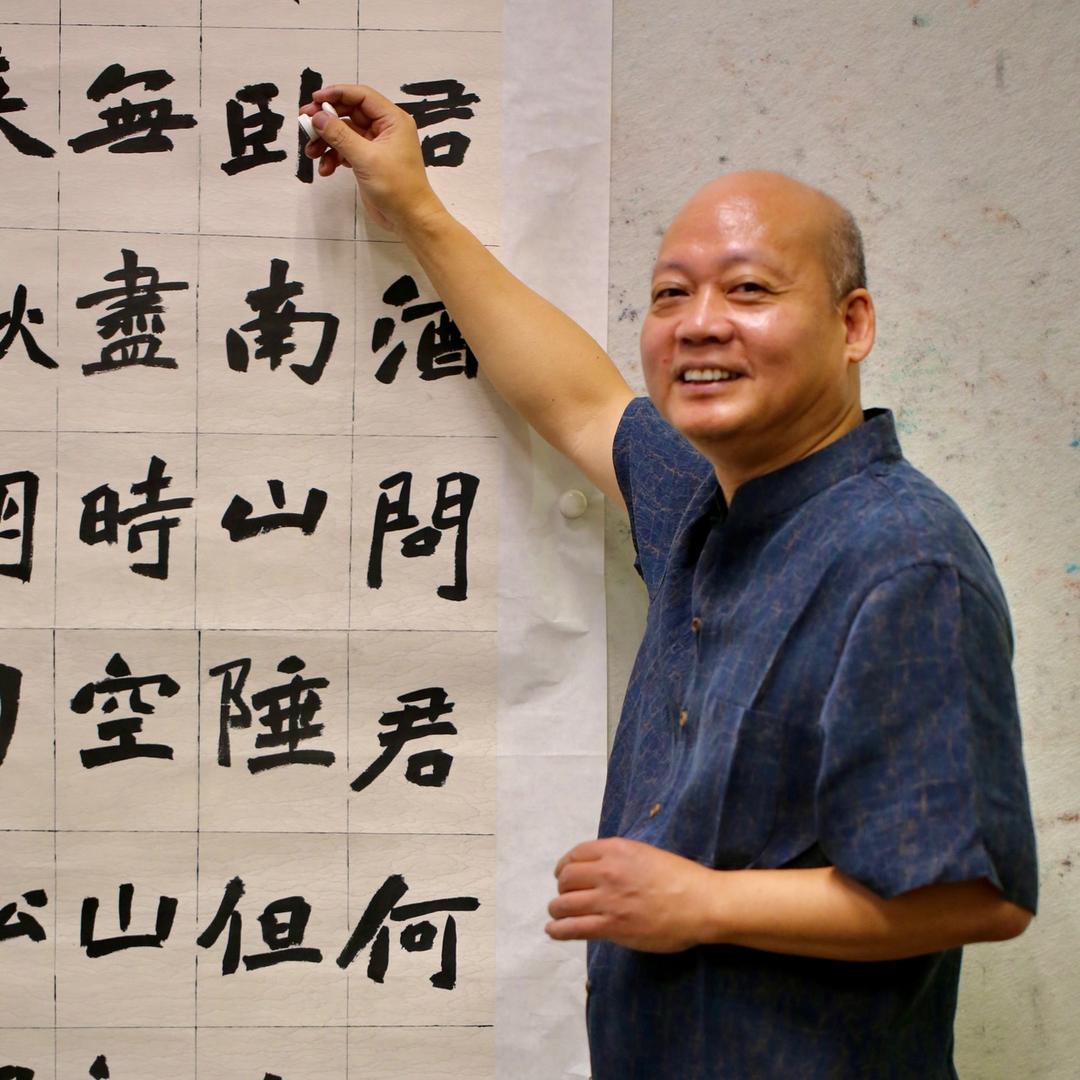 君酒問君何
臥南山陲但
無盡時空山